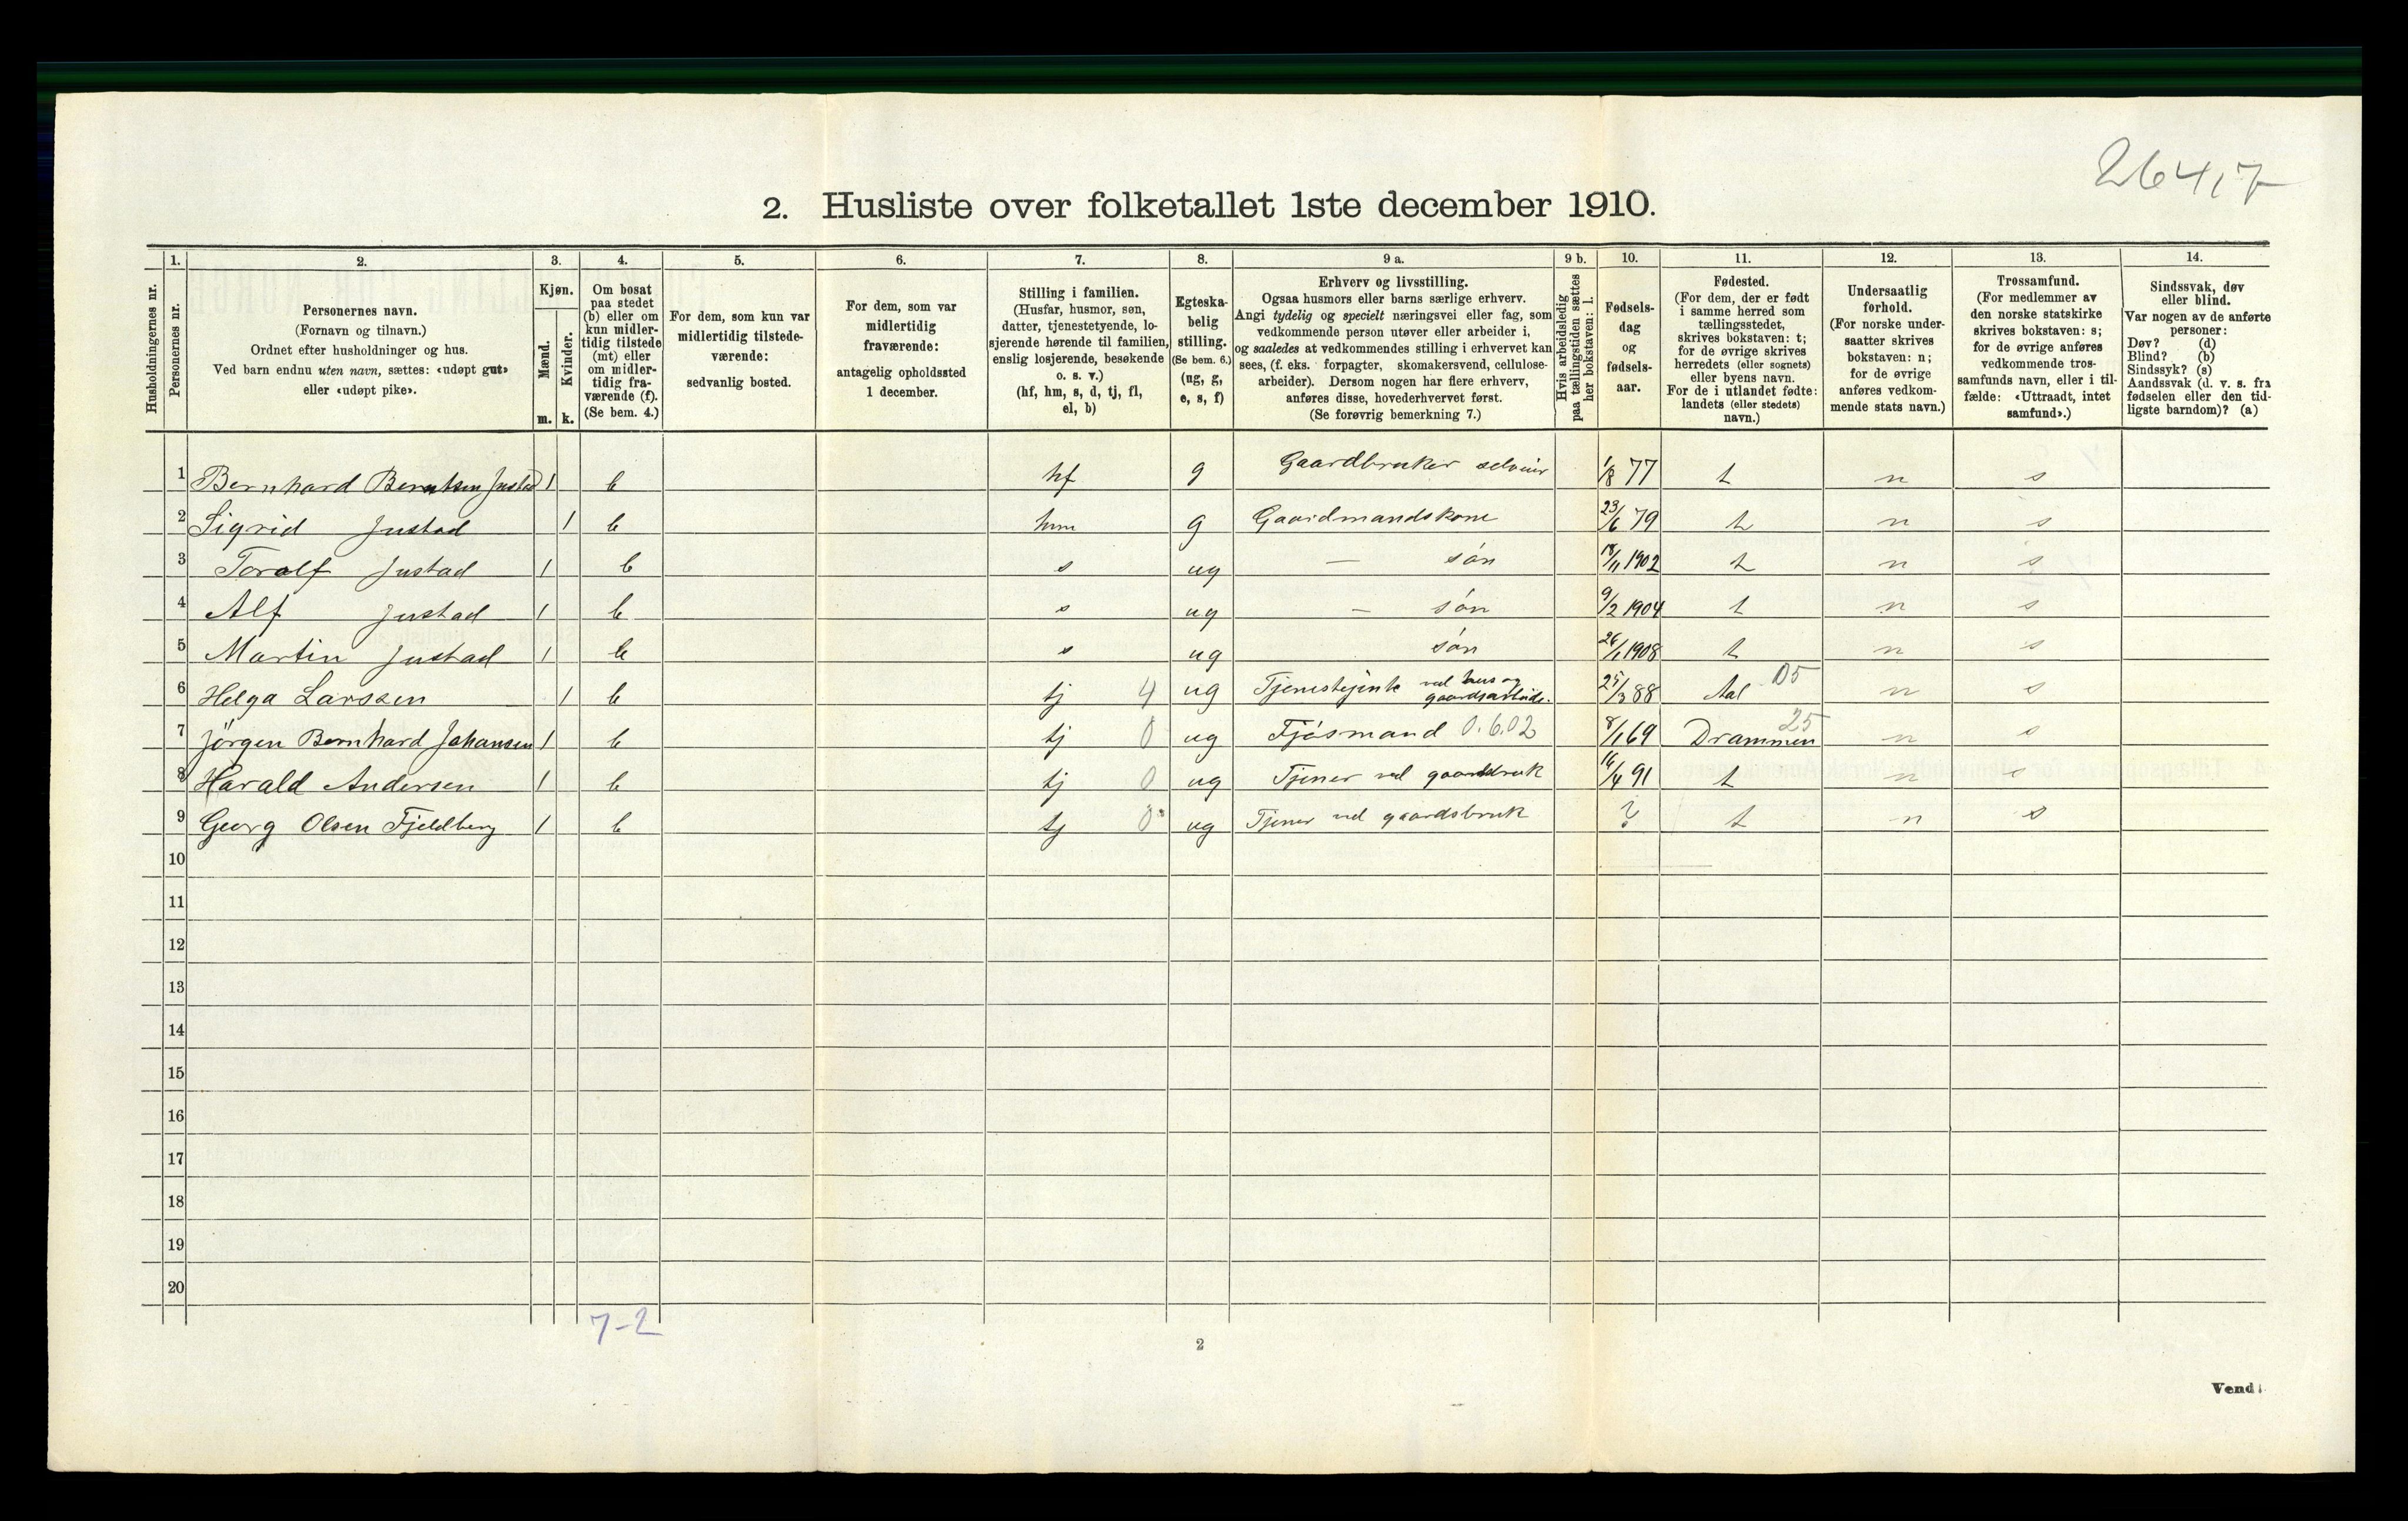 2641,7
2. Husliste over folketallet 1ste december 1910.
Husholdningernes nr.
1.
Personernes nr.
2.
Personernes navn.
(Fornavn og tilnavn.)
Ordnet efter husholdninger og hus.
Ved barn endnu uten navn, sættes: «udøpt gut»
eller «udøpt pike».
3.
Kjøn.
Mænd.
Kvinder.
m. k.
4.
Om bosat
paa stedet
(b) eller om
kun midler-
tidig tilstede
(mt) eller
om midler-
tidig fra-
værende (f).
(Se bem. 4.)
5.
For dem, som kun var
midlertidig tilstede-
værende:
sedvanlig bosted.
6.
For dem, som var
midlertidig
fraværende:
antagelig opholdssted
1 december.
7.
Stilling i familien.
(Husfar, husmor, søn,
datter, tjenestetyende, lo-
sjerende hørende til familien,
enslig losjerende, besøkende
o. s. v.)
(hf, hm, s, d, tj, fl,
el, b)
8.
Egteska-
belig
stilling.
(Se bem. 6.)
(ug, g,
e, s, f)
9 a.
Erhverv og livsstilling.
Ogsaa husmors eller barns særlige erhverv.
Angi tydelig og specielt næringsvei eller fag, som
vedkommende person utøver eller arbeider i,
og saaledes at vedkommendes stilling i erhvervet kan
sees, (f. eks. forpagter, skomakersvend, cellulose-
arbeider). Dersom nogen har flere erhverv,
anføres disse, hovederhvervet først.
(Se forøvrig bemerkning 7.)
9 b.
Hvis arbeidsledig
paa tællingstiden sættes
her bokstaven: l.
10.
Fødsels-
dag
og
fødsels-
aar.
11.
Fødested.
(For dem, der er født
i samme herred som
tællingsstedet,
skrives bokstaven: t;
for de øvrige skrives
herredets (eller sognets)
eller byens navn.
For de i utlandet fødte:
landets (eller stedets)
navn.)
12.
Undersaatlig
forhold.
(For norske under-
saatter skrives
bokstaven: n;
for de øvrige
anføres vedkom-
mende stats navn.)
13.
Trossamfund.
(For medlemmer av
den norske statskirke
skrives bokstaven: s;
for de øvrige anføres
vedkommende tros-
samfunds navn, eller i til-
fælde: «Uttraadt, intet
samfund».)
14.
Sindssvak, døv
eller blind.
Var nogen av de anførte
personer:
Døv? (d)
Blind? (b)
Sindssyk? (s)
Aandssvak (d. v. s. fra
fødselen eller den tid-
ligste barndom)? (a)
1 Bernhard Berntsen Justad 1 b hf g Gaardbruker selveier 1/8 77 t n s
2 Sigrid Justad 1 b hm g Gaardmandskone 23/6 79 t n s
3 Toralf Justad 1 b s ug — søn 18/11 1902 t n s
4 Alf Justad 1 b s ug — søn 9/2 1904 t n s
5 Martin Justad 1 b s ug søn 26/1 1908 t n s
6 Helga Larssen 1 b tj 4 ug Tjenestejente ved hus og gaardsarbeide. 25/3 88 Aal 05 n s
7 Jörgen Bernhard Johansen 1 b tj 0 ug Fjøsmand 0.6.02 8/1 69 Drammen 25 n s
8 Harald Andersen 1 b tj 0 ug Tjener ved gaardsbruk 16/4 91 t n s
9 Georg Olsen Fjeldberg 1 b tj 0 ug Tjener ved gaardsbruk ? t n s
10
11
12
13
14
15
16
17
18
19
20
7-2
2
Vend!